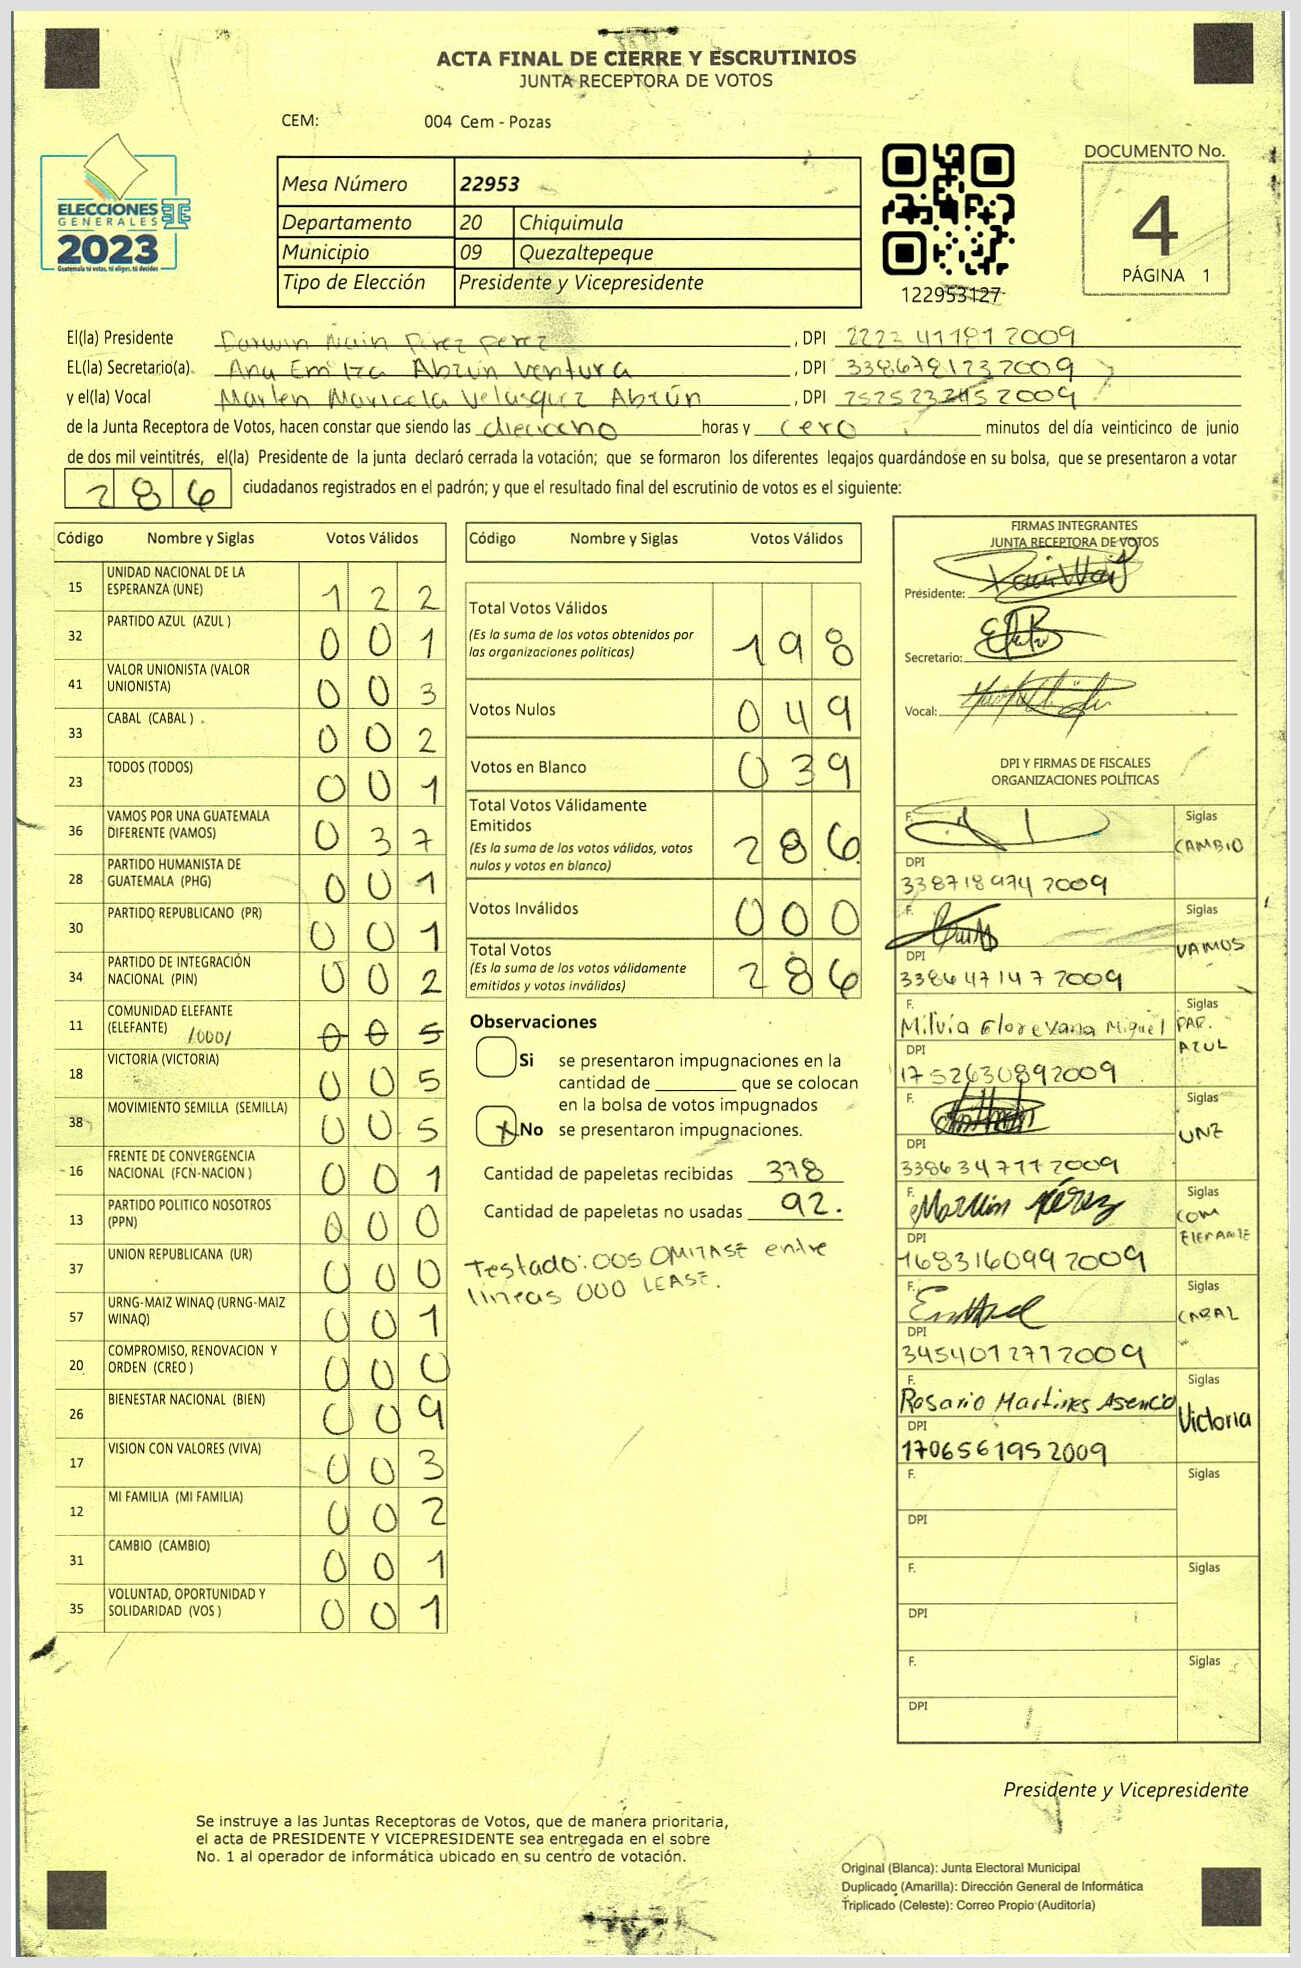 ACTA FINAL DE CIERRE Y ESCRUTINIOS
JUNTA RECEPTORA DE VOTOS
CEM: 004 Cem - Pozas
ELECCIONES
GENERALES
2023
Guatemala tú votas, tú eliges, tú decides
Mesa Número 22953
Departamento 20 Chiquimula
Municipio 09 Quezaltepeque
Tipo de Elección Presidente y Vicepresidente
122953127
DOCUMENTO No.
4
PÁGINA 1
El(la) Presidente Darwin Nain Pérez Perez, DPI 2223 41181 2009
EL(la) Secretario(a). Ana Emilza Abzún Ventura, DPI 338678123 2009
y el(la) Vocal Marlen Maricela Velasquez Abzún, DPI 2009
de la Junta Receptora de Votos, hacen constar que siendo las dieciocho horas y cero minutos del día veinticinco de junio
de dos mil veintitrés, el(la) Presidente de la junta declaró cerrada la votación; que se formaron los diferentes legajos guardándose en su bolsa, que se presentaron a votar
286 ciudadanos registrados en el padrón; y que el resultado final del escrutinio de votos es el siguiente:
Código Nombre y Siglas Votos Válidos
15 UNIDAD NACIONAL DE LA ESPERANZA (UNE) 1 2 2
32 PARTIDO AZUL (AZUL ) 0 0 1
41 VALOR UNIONISTA (VALOR UNIONISTA) 0 0 3
33 CABAL (CABAL ) 0 0 2
23 TODOS (TODOS) 0 0 1
36 VAMOS POR UNA GUATEMALA DIFERENTE (VAMOS) 0 3 7
28 PARTIDO HUMANISTA DE GUATEMALA (PHG) 0 0 1
30 PARTIDO REPUBLICANO (PR) 0 0 1
34 PARTIDO DE INTEGRACIÓN NACIONAL (PIN) 0 0 2
11 COMUNIDAD ELEFANTE (ELEFANTE) /000/ 0 0 5
18 VICTORIA (VICTORIA) 0 0 5
38 MOVIMIENTO SEMILLA (SEMILLA) 0 0 5
16 FRENTE DE CONVERGENCIA NACIONAL (FCN-NACION ) 0 0 1
13 PARTIDO POLITICO NOSOTROS (PPN) 0 0 0
37 UNION REPUBLICANA (UR) 0 0 0
57 URNG-MAIZ WINAQ (URNG-MAIZ WINAQ) 0 0 1
20 COMPROMISO, RENOVACION Y ORDEN (CREO ) 0 0 0
26 BIENESTAR NACIONAL (BIEN) 0 0 9
17 VISION CON VALORES (VIVA) 0 0 3
12 MI FAMILIA (MI FAMILIA) 0 0 2
31 CAMBIO (CAMBIO) 0 0 1
35 VOLUNTAD, OPORTUNIDAD Y SOLIDARIDAD (VOS ) 0 0 1
Código Nombre y Siglas Votos Válidos
Total Votos Válidos 1 9 8
(Es la suma de los votos obtenidos por
las organizaciones políticas)
Votos Nulos 0 4 9
Votos en Blanco 0 3 9
Total Votos Válidamente
Emitidos 2 8 6
(Es la suma de los votos válidos, votos
nulos y votos en blanco)
Votos Inválidos 0 0 0
Total Votos 2 8 6
(Es la suma de los votos válidamente
emitidos y votos inválidos)
Observaciones
Si se presentaron impugnaciones en la
cantidad de ________ que se colocan
en la bolsa de votos impugnados
X No se presentaron impugnaciones.
Cantidad de papeletas recibidas 378
Cantidad de papeletas no usadas 92.
Testado: 005 OMITASE entre
lineas 000 LEASE.
FIRMAS INTEGRANTES
JUNTA RECEPTORA DE VOTOS
Presidente:
Secretario:
Vocal:
DPI Y FIRMAS DE FISCALES
ORGANIZACIONES POLÍTICAS
F. Siglas CAMBIO
DPI
338718974 2009
F. Siglas VAMOS
DPI
338647147 2009
F. Milvia Siglas PAR. AZUL
DPI
1752630892009
F. Siglas UNE
DPI
3386347172009
F. Marlin Pérez Siglas COM ELEFANTE
DPI
1683160992009
F. Siglas CABAL
DPI
3454012712009
F. Rosario Martines Asencio Siglas Victoria
DPI
1706561952009
F. Siglas
DPI
F. Siglas
DPI
F. Siglas
DPI
Presidente y Vicepresidente
Se instruye a las Juntas Receptoras de Votos, que de manera prioritaria,
el acta de PRESIDENTE Y VICEPRESIDENTE sea entregada en el sobre
No. 1 al operador de informática ubicado en su centro de votación.
Original (Blanca): Junta Electoral Municipal
Duplicado (Amarilla): Dirección General de Informática
Triplicado (Celeste): Correo Propio (Auditoría)